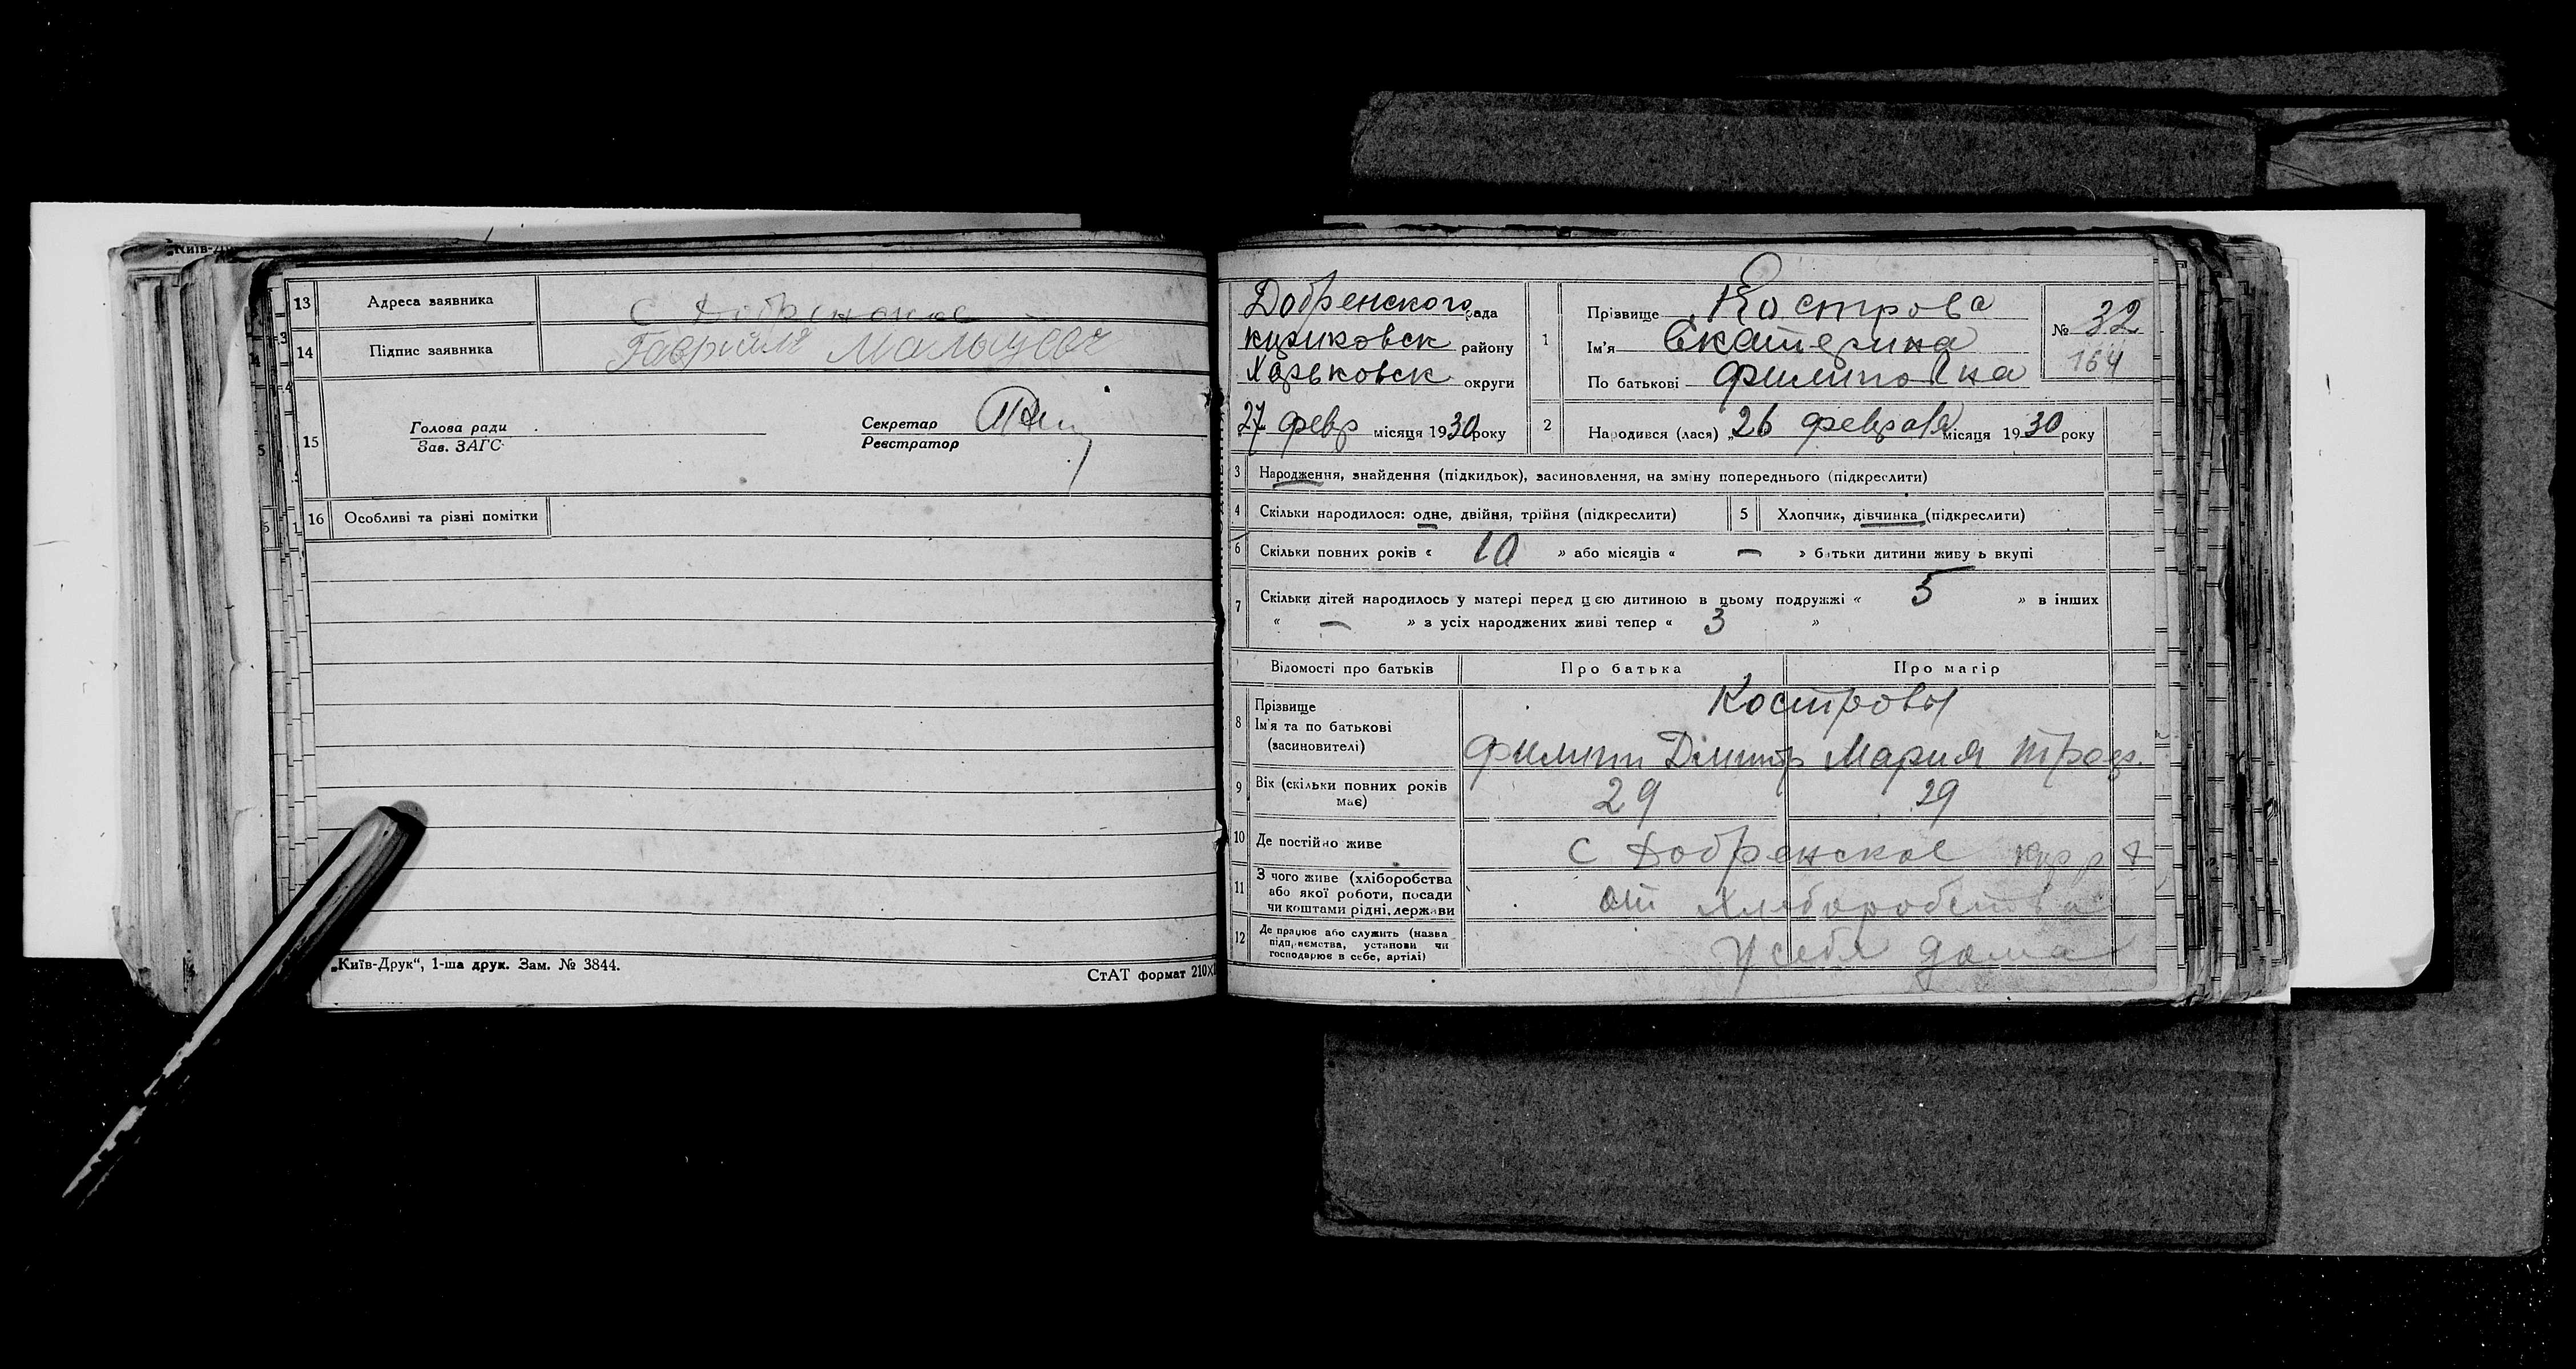 Київ-Др
13 Адреса заявника С Добренское
14 Підпис заявника Гавриил Мальцев
15 Голова ради
Зав. ЗАГС
Секретар
Реєстратор
16 Особливі та різні помітки
„Київ-Друк“, 1-ша друк. Зам. № 3844.
СтАТ формат 210×
Добренского рада
района
Харьковск округи
27 февр місяця 1930 року
1 Прізвище Кострова
Ім'я Екатерина
По батькові Филиповна
№ 32
164
2 Народився (лася) „26 февраля місяця 1930 року
3 Народження, знайдення (підкидьок), засиновлення, на зміну попереднього (підкреслити)
4 Скільки народилося: одне, двійня, трійня (підкреслити)
5 Хлопчик, дівчинка (підкреслити)
6 Скільки повних років « 10 » або місяців « — » батьки дитини живуть вкупі
7 Скільки дітей народилось у матері перед цією дитиною в цьому подружжі « 5 » в інших
« — » з усіх народжених живі тепер « 3 »
Відомості про батьків
Про батька
Про матір
8 Прізвище
Ім'я та по батькові
(засиновителі)
Костровы
Филипп Дмитр Мария
9 Вік (скільки повних років
має)
29
29
10 Де постійно живе
С Добренское
11 З чого живе (хліборобства
або якої роботи, посади
чи коштами рідні, держави
от хлеборобства
12 Де працює або служить (назва
підприємства, установи чи
господарює в себе, артілі)
у себя дома